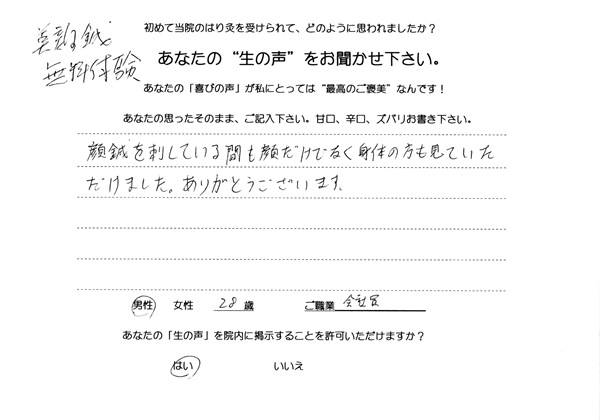 美顔鍼
無料体験
初めて当院のはり灸を受けられて、どのように思われましたか？
あなたの“生の声”をお聞かせ下さい。
あなたの「喜びの声」が私にとっては“最高のご褒美”なんです！
あなたの思ったそのまま、ご記入下さい。甘口、辛口、ズバリお書き下さい。
顔鍼を刺している間も顔だけでなく身体の方も見ていた
だけました。ありがとうございます。
男性 女性 28 歳 ご職業 会社員
あなたの「生の声」を院内に掲示することを許可いただけますか？
はい いいえ